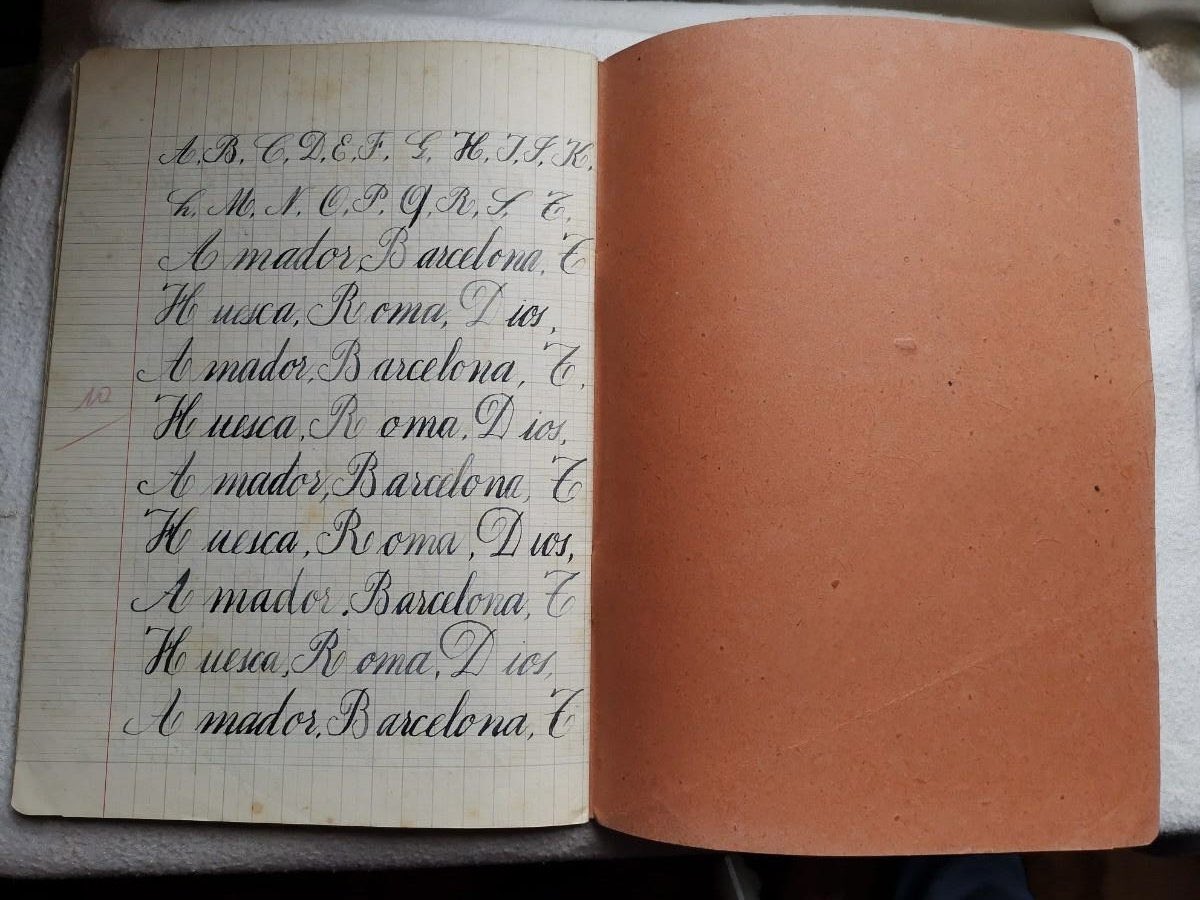 A. B. C. D. E. F. G. H. I. J. K.
L. M. N. O. P. Q. R. S. T.
Amador, Barcelona, T
Huesca, Roma, Dios,
Amador, Barcelona, T,
10
Huesca, Roma, Dios,
Amador, Barcelona, T
Huesca, Roma, Dios,
Amador, Barcelona, T
Huesca, Roma, Dios,
Amador, Barcelona, T